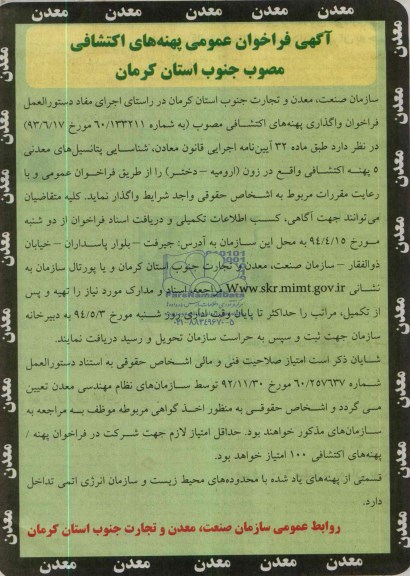 معدن معدن معدن معدن معدن
آگهی فراخوان عمومی پهنه‌های اکتشافی
مصوب جنوب استان کرمان
سازمان صنعت، معدن و تجارت جنوب استان کرمان در راستای اجرای مفاد دستورالعمل
فراخوان واگذاری پهنه‌های اکتشافی مصوب (به شماره ۶۰/۱۳۳۲۱۱ مورخ ۹۳/۶/۱۷)
در نظر دارد طبق ماده ۳۲ آیین‌نامه اجرایی قانون معادن، شناسایی پتانسیل‌های معدنی
۵ پهنه اکتشافی واقع در زون (ارومیه – دختر) را از طریق فراخوان عمومی و با
رعایت مقررات مربوط به اشخاص حقوقی واجد شرایط واگذار نماید. کلیه متقاضیان
می‌توانند جهت آگاهی، کسب اطلاعات تکمیلی و دریافت اسناد فراخوان از دو شنبه
مورخ ۹۴/۴/۱۵ به محل این سازمان به آدرس: جیرفت – بلوار پاسداران – خیابان
ذوالفقار – سازمان صنعت، معدن و تجارت جنوب استان کرمان و یا پورتال سازمان به
نشانی www.skr.mimt.gov.ir مراجعه اسناد و مدارک مورد نیاز را تهیه و پس
از تکمیل، مراتب را حداکثر تا پایان وقت اداری روز شنبه مورخ ۹۴/۵/۳ به دبیرخانه
سازمان جهت ثبت و سپس به حراست سازمان تحویل و رسید دریافت نمایند.
شایان ذکر است امتیاز صلاحیت فنی و مالی اشخاص حقوقی به استناد دستورالعمل
شماره ۶۰/۲۵۷۶۳۷ مورخ ۹۲/۱۱/۳۰ توسط سازمان‌های نظام مهندسی معدن تعیین
می گردد و اشخاص حقوقی به منظور اخذ گواهی مربوطه موظف به مراجعه به
سازمان‌های مذکور خواهند بود. حداقل امتیاز لازم جهت شرکت در فراخوان پهنه /
پهنه‌های اکتشافی ۱۰۰ امتیاز خواهد بود.
قسمتی از پهنه‌های یاد شده با محدوده‌های محیط زیست و سازمان انرژی اتمی تداخل
دارد.
روابط عمومی سازمان صنعت، معدن و تجارت جنوب استان کرمان
معدن معدن معدن معدن معدن